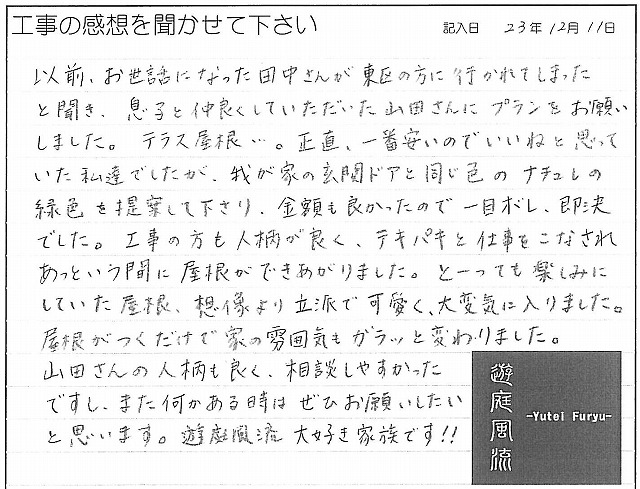 工事の感想を聞かせて下さい
記入日 23年12月11日
以前、お世話になった田中さんが東区の方に行かれてしまった
と聞き、息子と仲良くしていただいた山田さんにプランをお願い
しました。 テラス屋根…。正直、一番安いのでいいねと思って
いた私達でしたが、我が家の玄関ドアと同じ色のナチュレの
緑色を提案して下さり、金額も良かったので一目ボレ、即決
でした。工事の方も人柄が良く、テキパキと仕事をこなされ
あっという間に屋根ができあがりました。と一っても楽しみに
していた屋根、想像より立派で可愛く、大変気に入りました。
屋根がつくだけで家の雰囲気もガラッと変わりました。
山田さんの人柄も良く、相談しやすかった
ですし、また何かある時はぜひお願いしたい
と思います。遊庭風流 大好き家族です!!
遊庭風流
-Yutei Furyu-